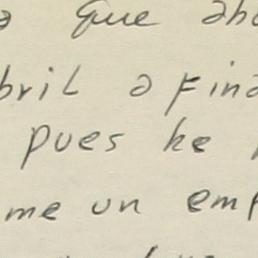 que aho
bril a Fina
pues he
me un emp